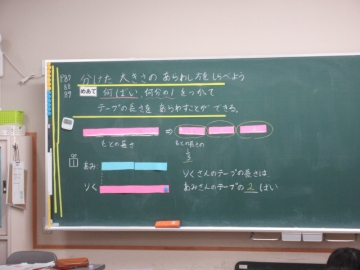 P87
88
89
分けた 大きさの あらわし方を しらべよう
めあて 何ばい、何分の1 をつかって
テープの長さを あらわすことができる。
⇒
もとの長さ
もとの長さの
1/3
1
あみ
りく
りくさんのテープの長さは
あみさんのテープの 2 ばい